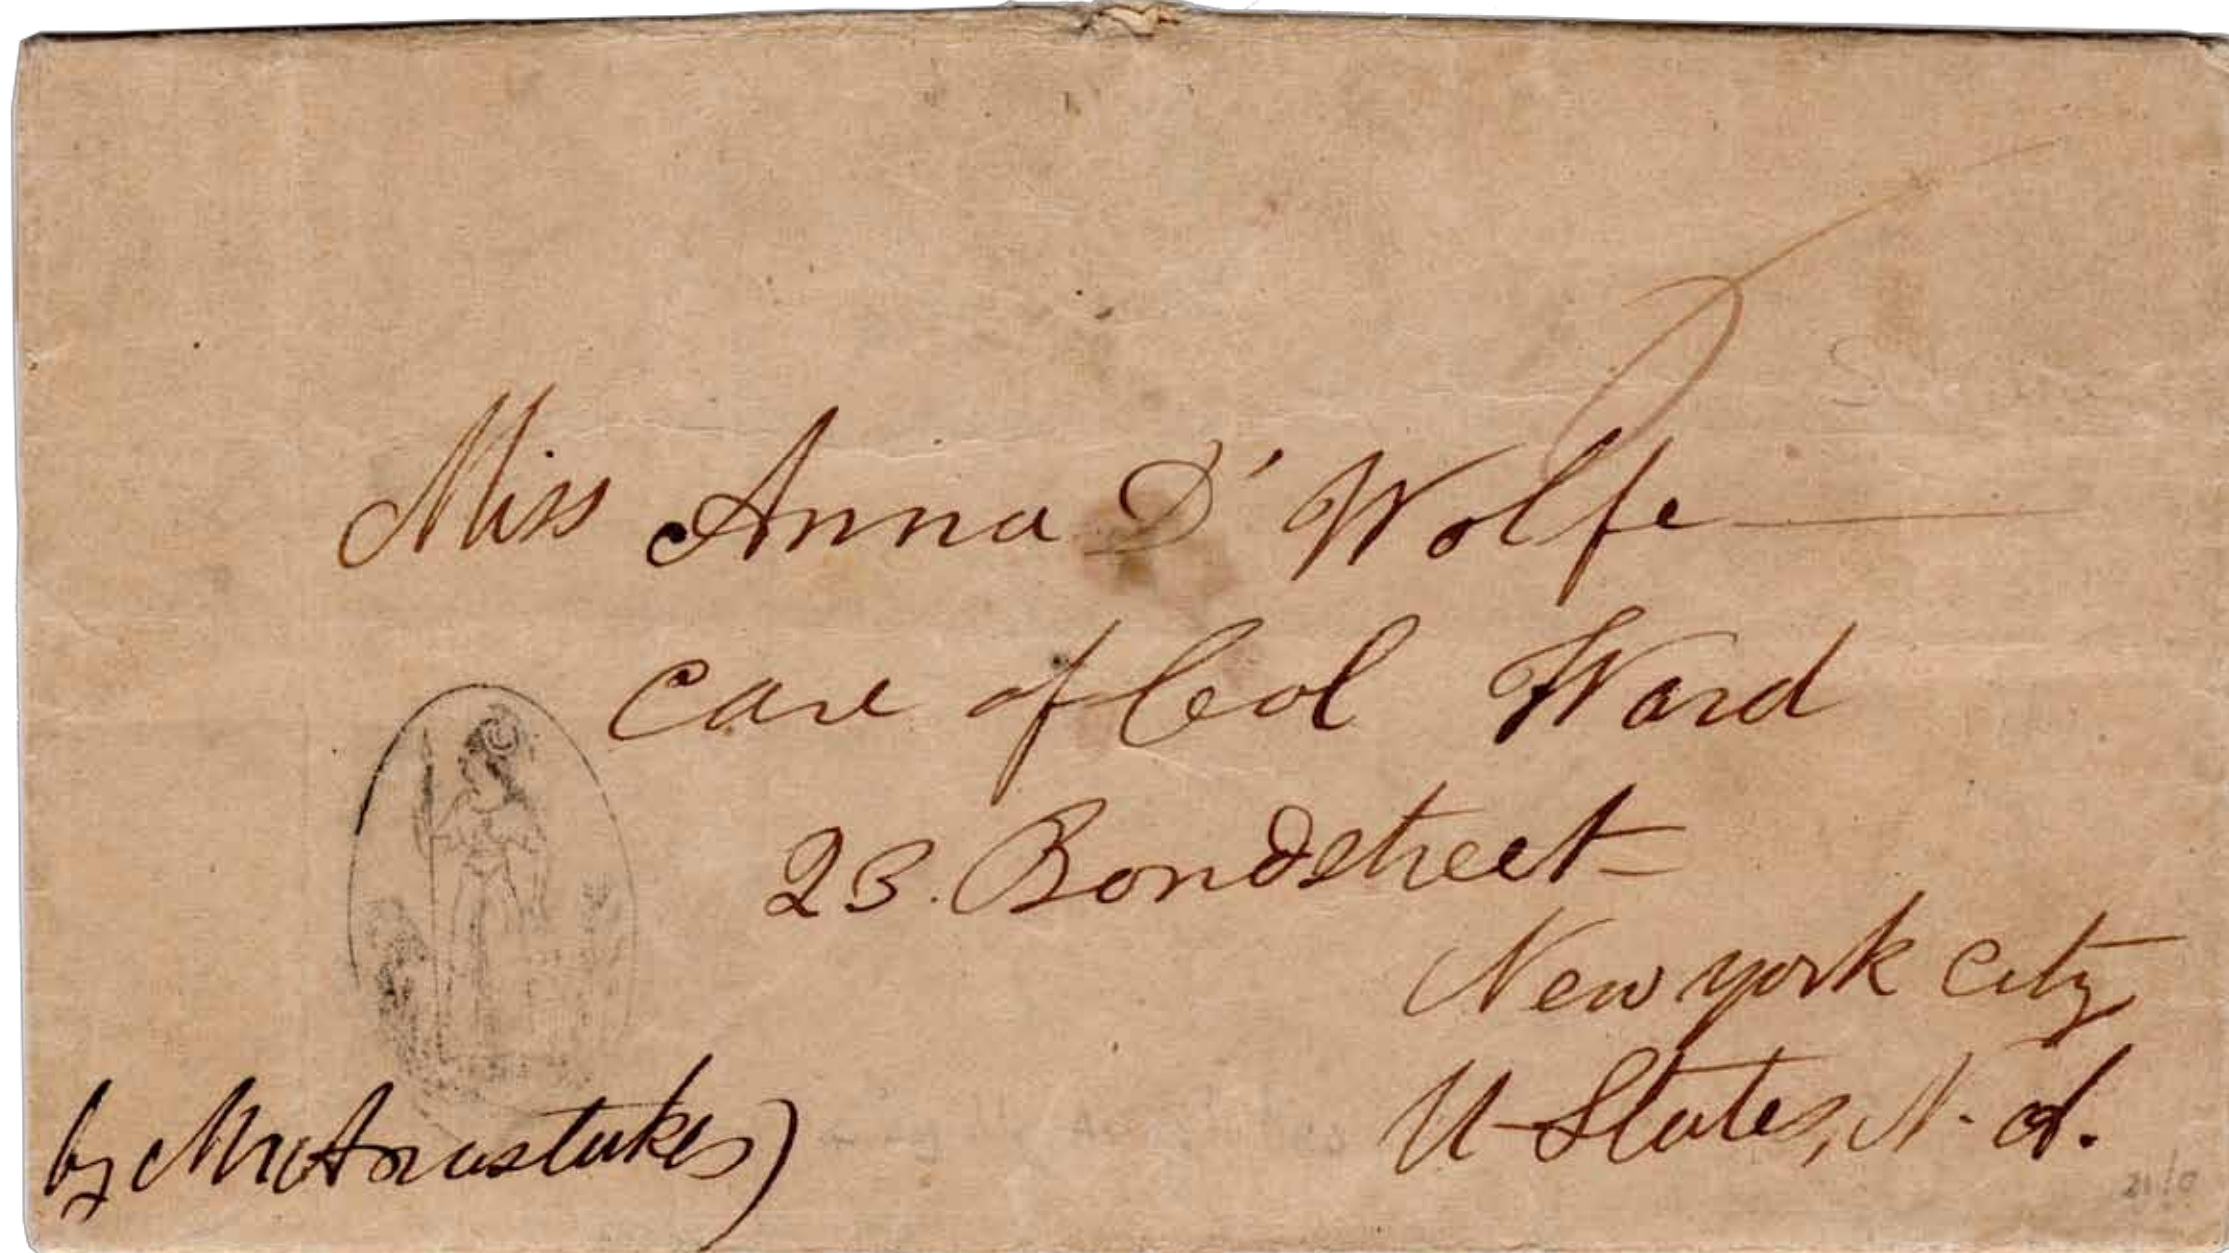 Miss Anna D'Wolfe
care of Col Ward
23. Bondstreet
New york city
U States, N. A.
by Mr